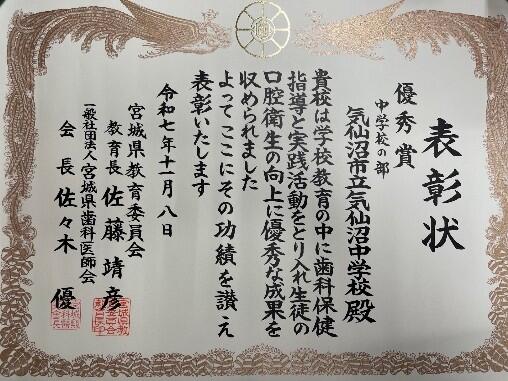 表彰状
優秀賞
中学校の部
気仙沼市立気仙沼中学校 殿
貴校は学校教育の中に歯科保健
指導と実践活動をとり入れ生徒の
口腔衛生の向上に優秀な成果を
収められました
よってここにその功績を讃え
表彰いたします
令和七年十一月八日
宮城県教育委員会
教育長 佐藤靖彦
一般社団法人宮城県歯科医師会
会長 佐々木 優